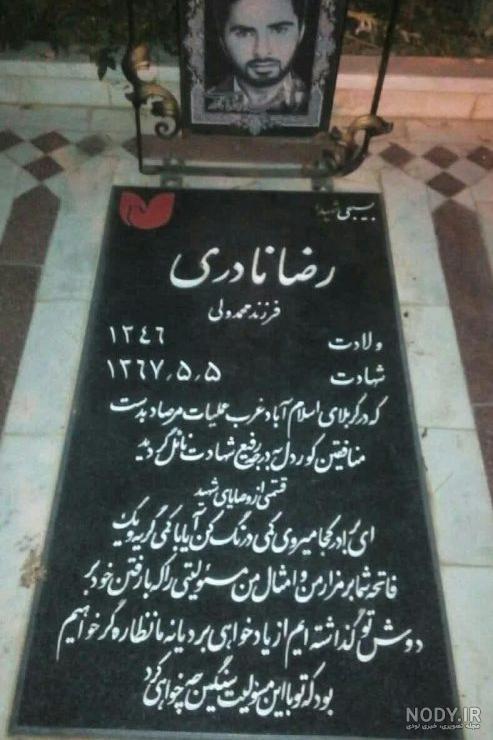 بسیجی شهید
رضا نادری
فرزند محمدولی
ولادت ۱۳٤٦
شهادت ۱۳٦۷٫۵٫۵
که در کربلای اسلام آباد غرب عملیات مرصاد بدست
منافقین کوردل به درجه رفیع شهادت نائل گردید
قسمتی از وصایای شهید
ای برادر کجا میروی کمی درنگ کن آیا با کمی گریه و یک
فاتحه شما بر مزار من و امثال من مسئولیتی را که با رفتن خود بر
دوش تو گذاشته ایم از یاد خواهی برد یا نه ما نظاره گر خواهیم
بود که تو با این مسئولیت سنگین چه خواهی کرد
NODY.IR
مجله تصویری، خبری نودی